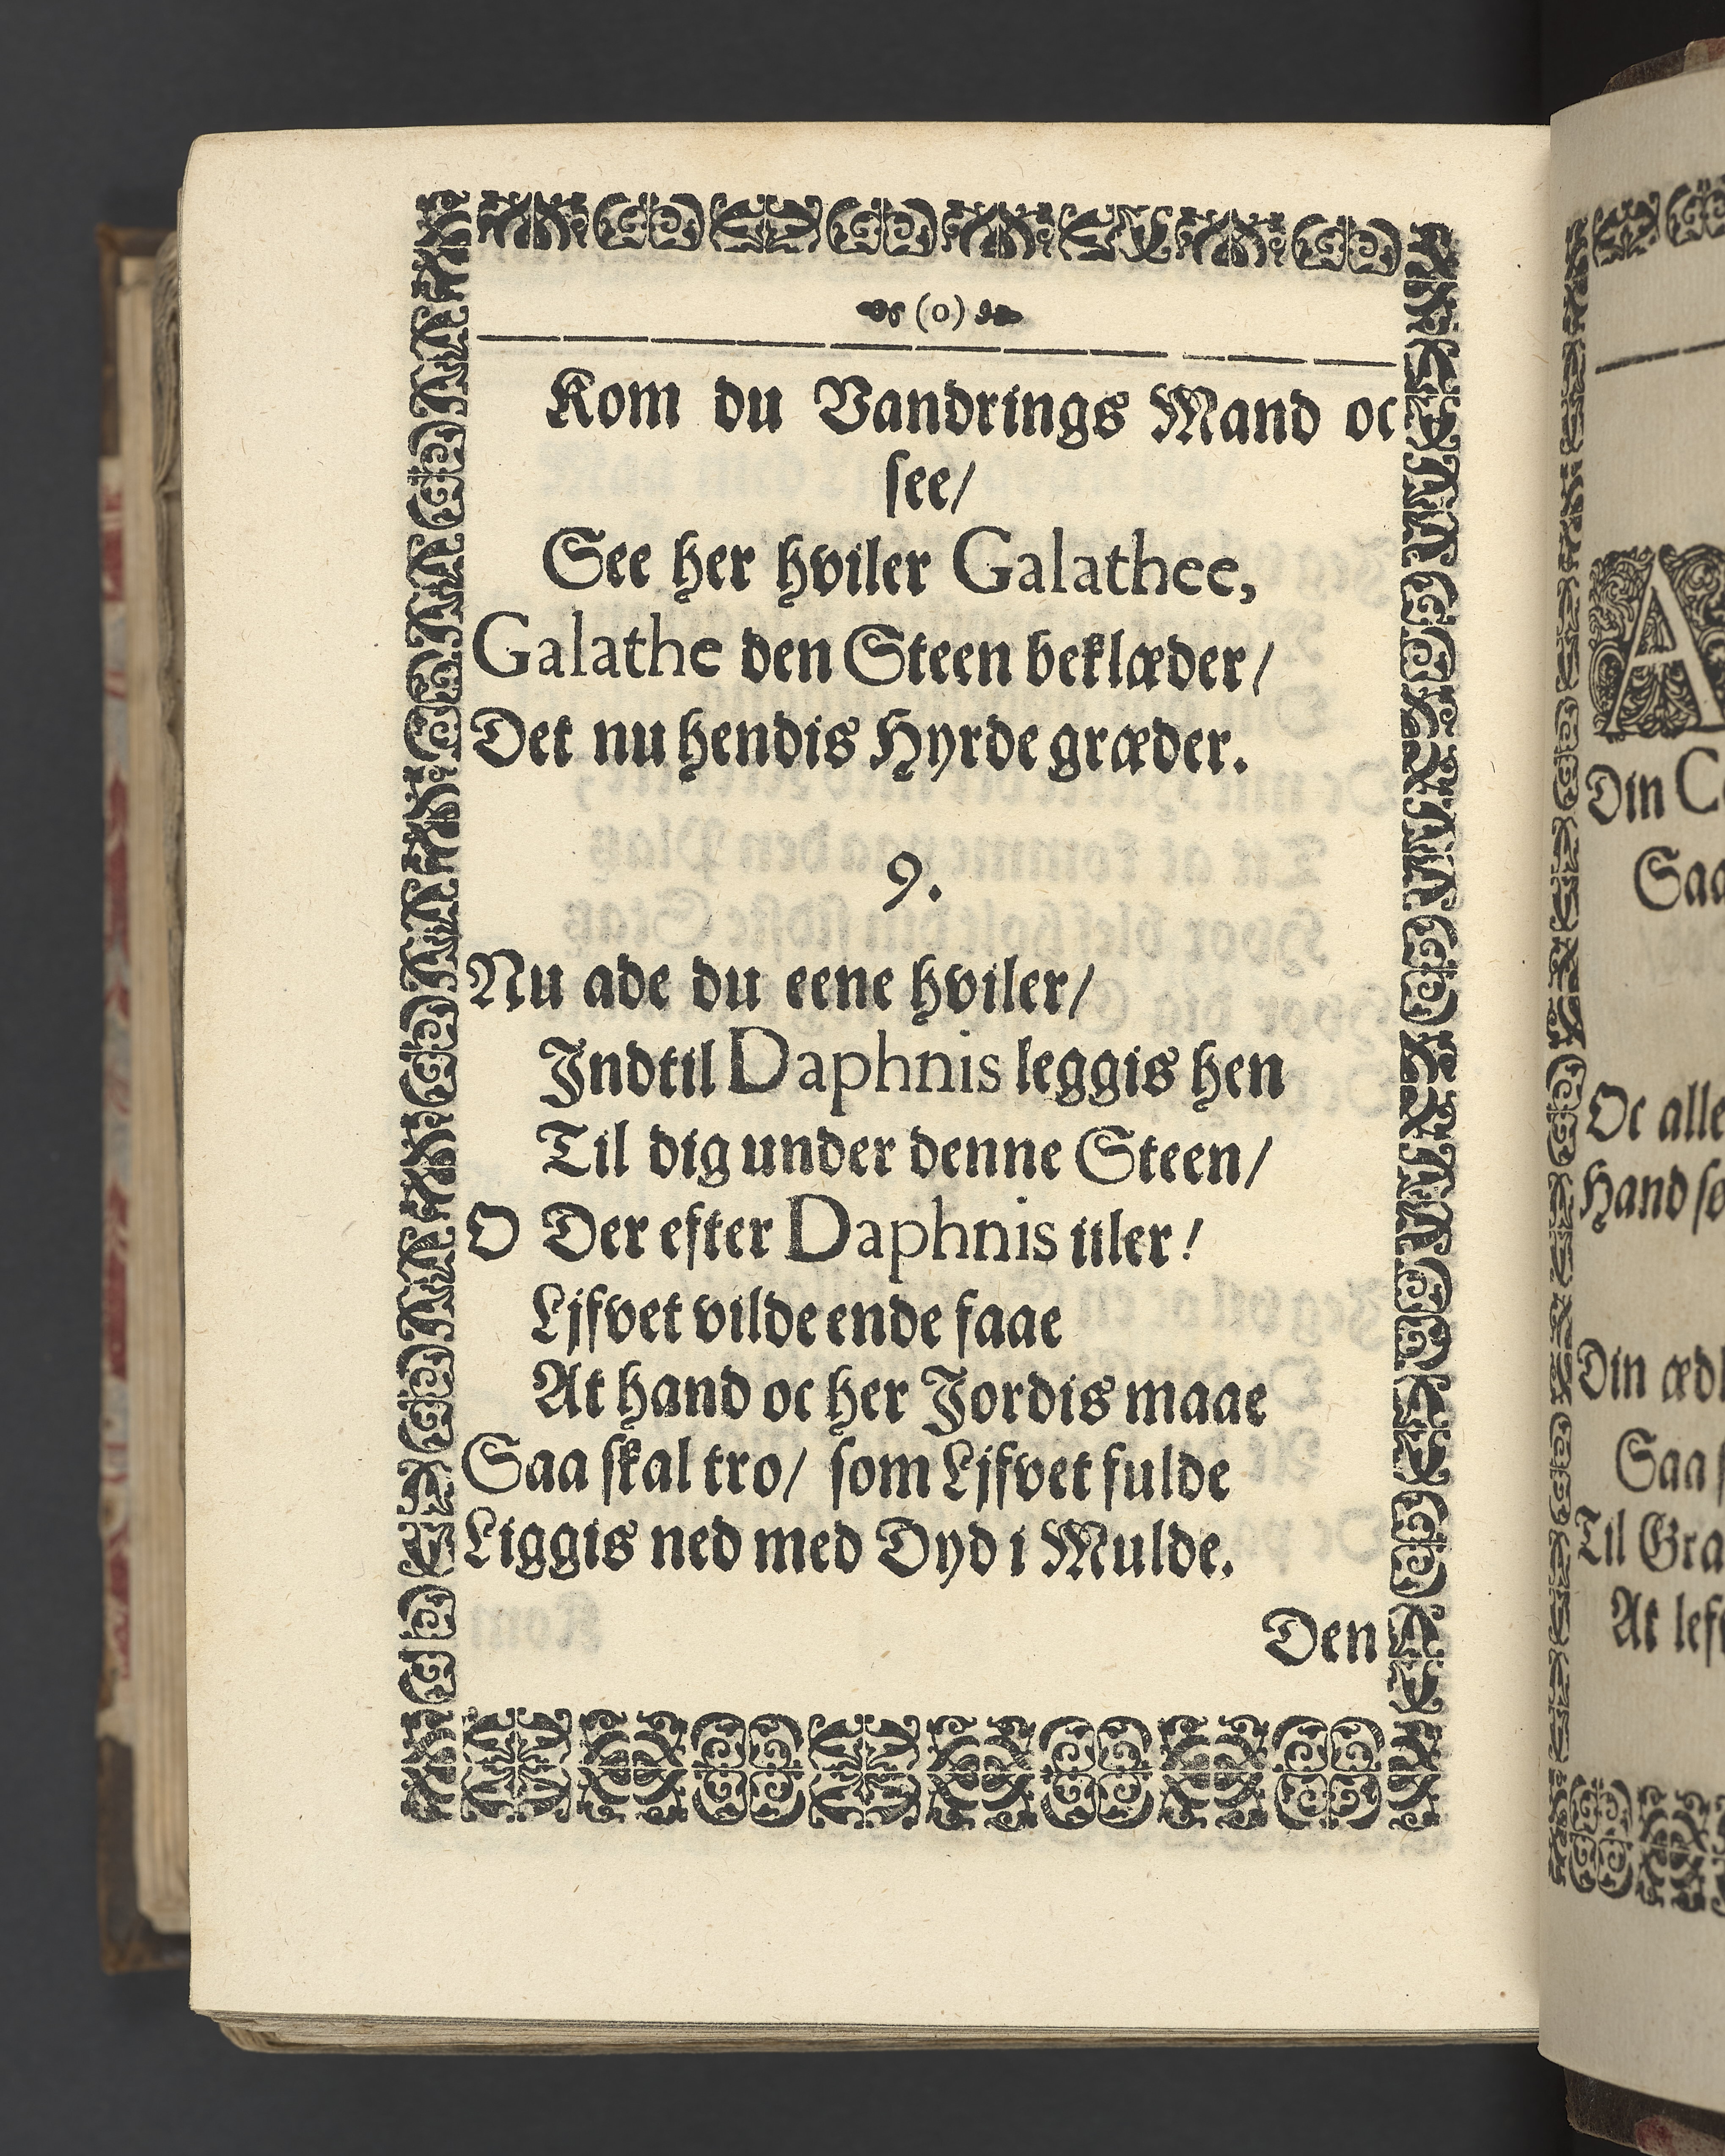 (o)
Kom du Vandrings Mand oc
see/
See her hviler Galathee,
Galathe den Steen beklæder/
Det nu hendis Hyrde græder.
9.
Nu ade du eene hviler/
Indtil Daphnis leggis hen
Til dig under denne Steen/
O Der efter Daphnis iiler!
Ljfvet vilde ende faae
At hand oc her Jordis maae
Saa skal tro/ som Ljfvet fulde
Liggis ned med Dyd i Mulde.
Den
A
Din
Saa
Oc alle
Hand
Din
Saa
Til
At